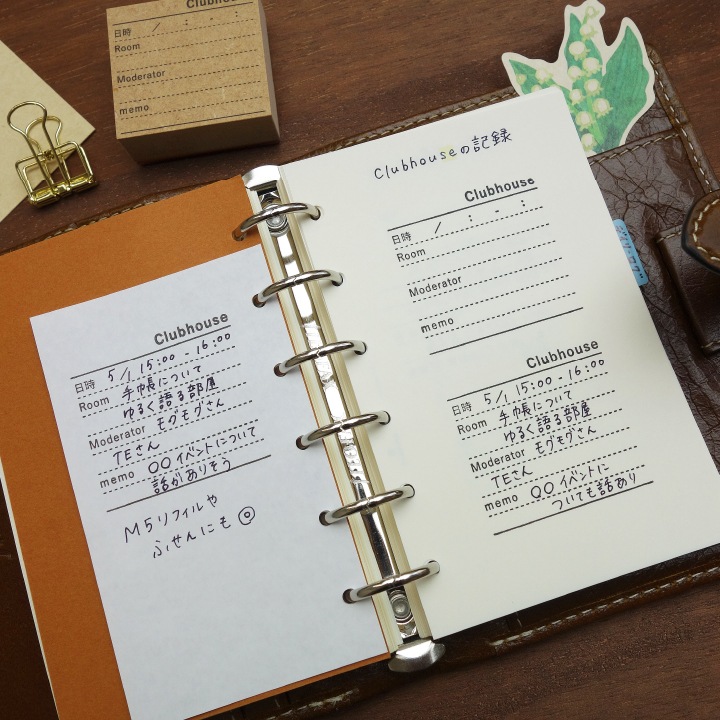 Clubhouse
日時 / : - :
Room
Moderator
memo
Clubhouseの記録
Clubhouse
日時 / : - :
Room
Moderator
memo
Clubhouse
日時 5/1 15:00 - 16:00
Room 手帳について
ゆるく語る部屋
Moderator モグモグさん
TEさん
memo ○○イベントに
ついても話あり
Clubhouse
日時 5/1 15:00 - 16:00
Room 手帳について
ゆるく語る部屋
Moderator モグモグさん
TEさん
memo ○○イベントについて
話がありそう
M5リフィルや
ふせんにも◎